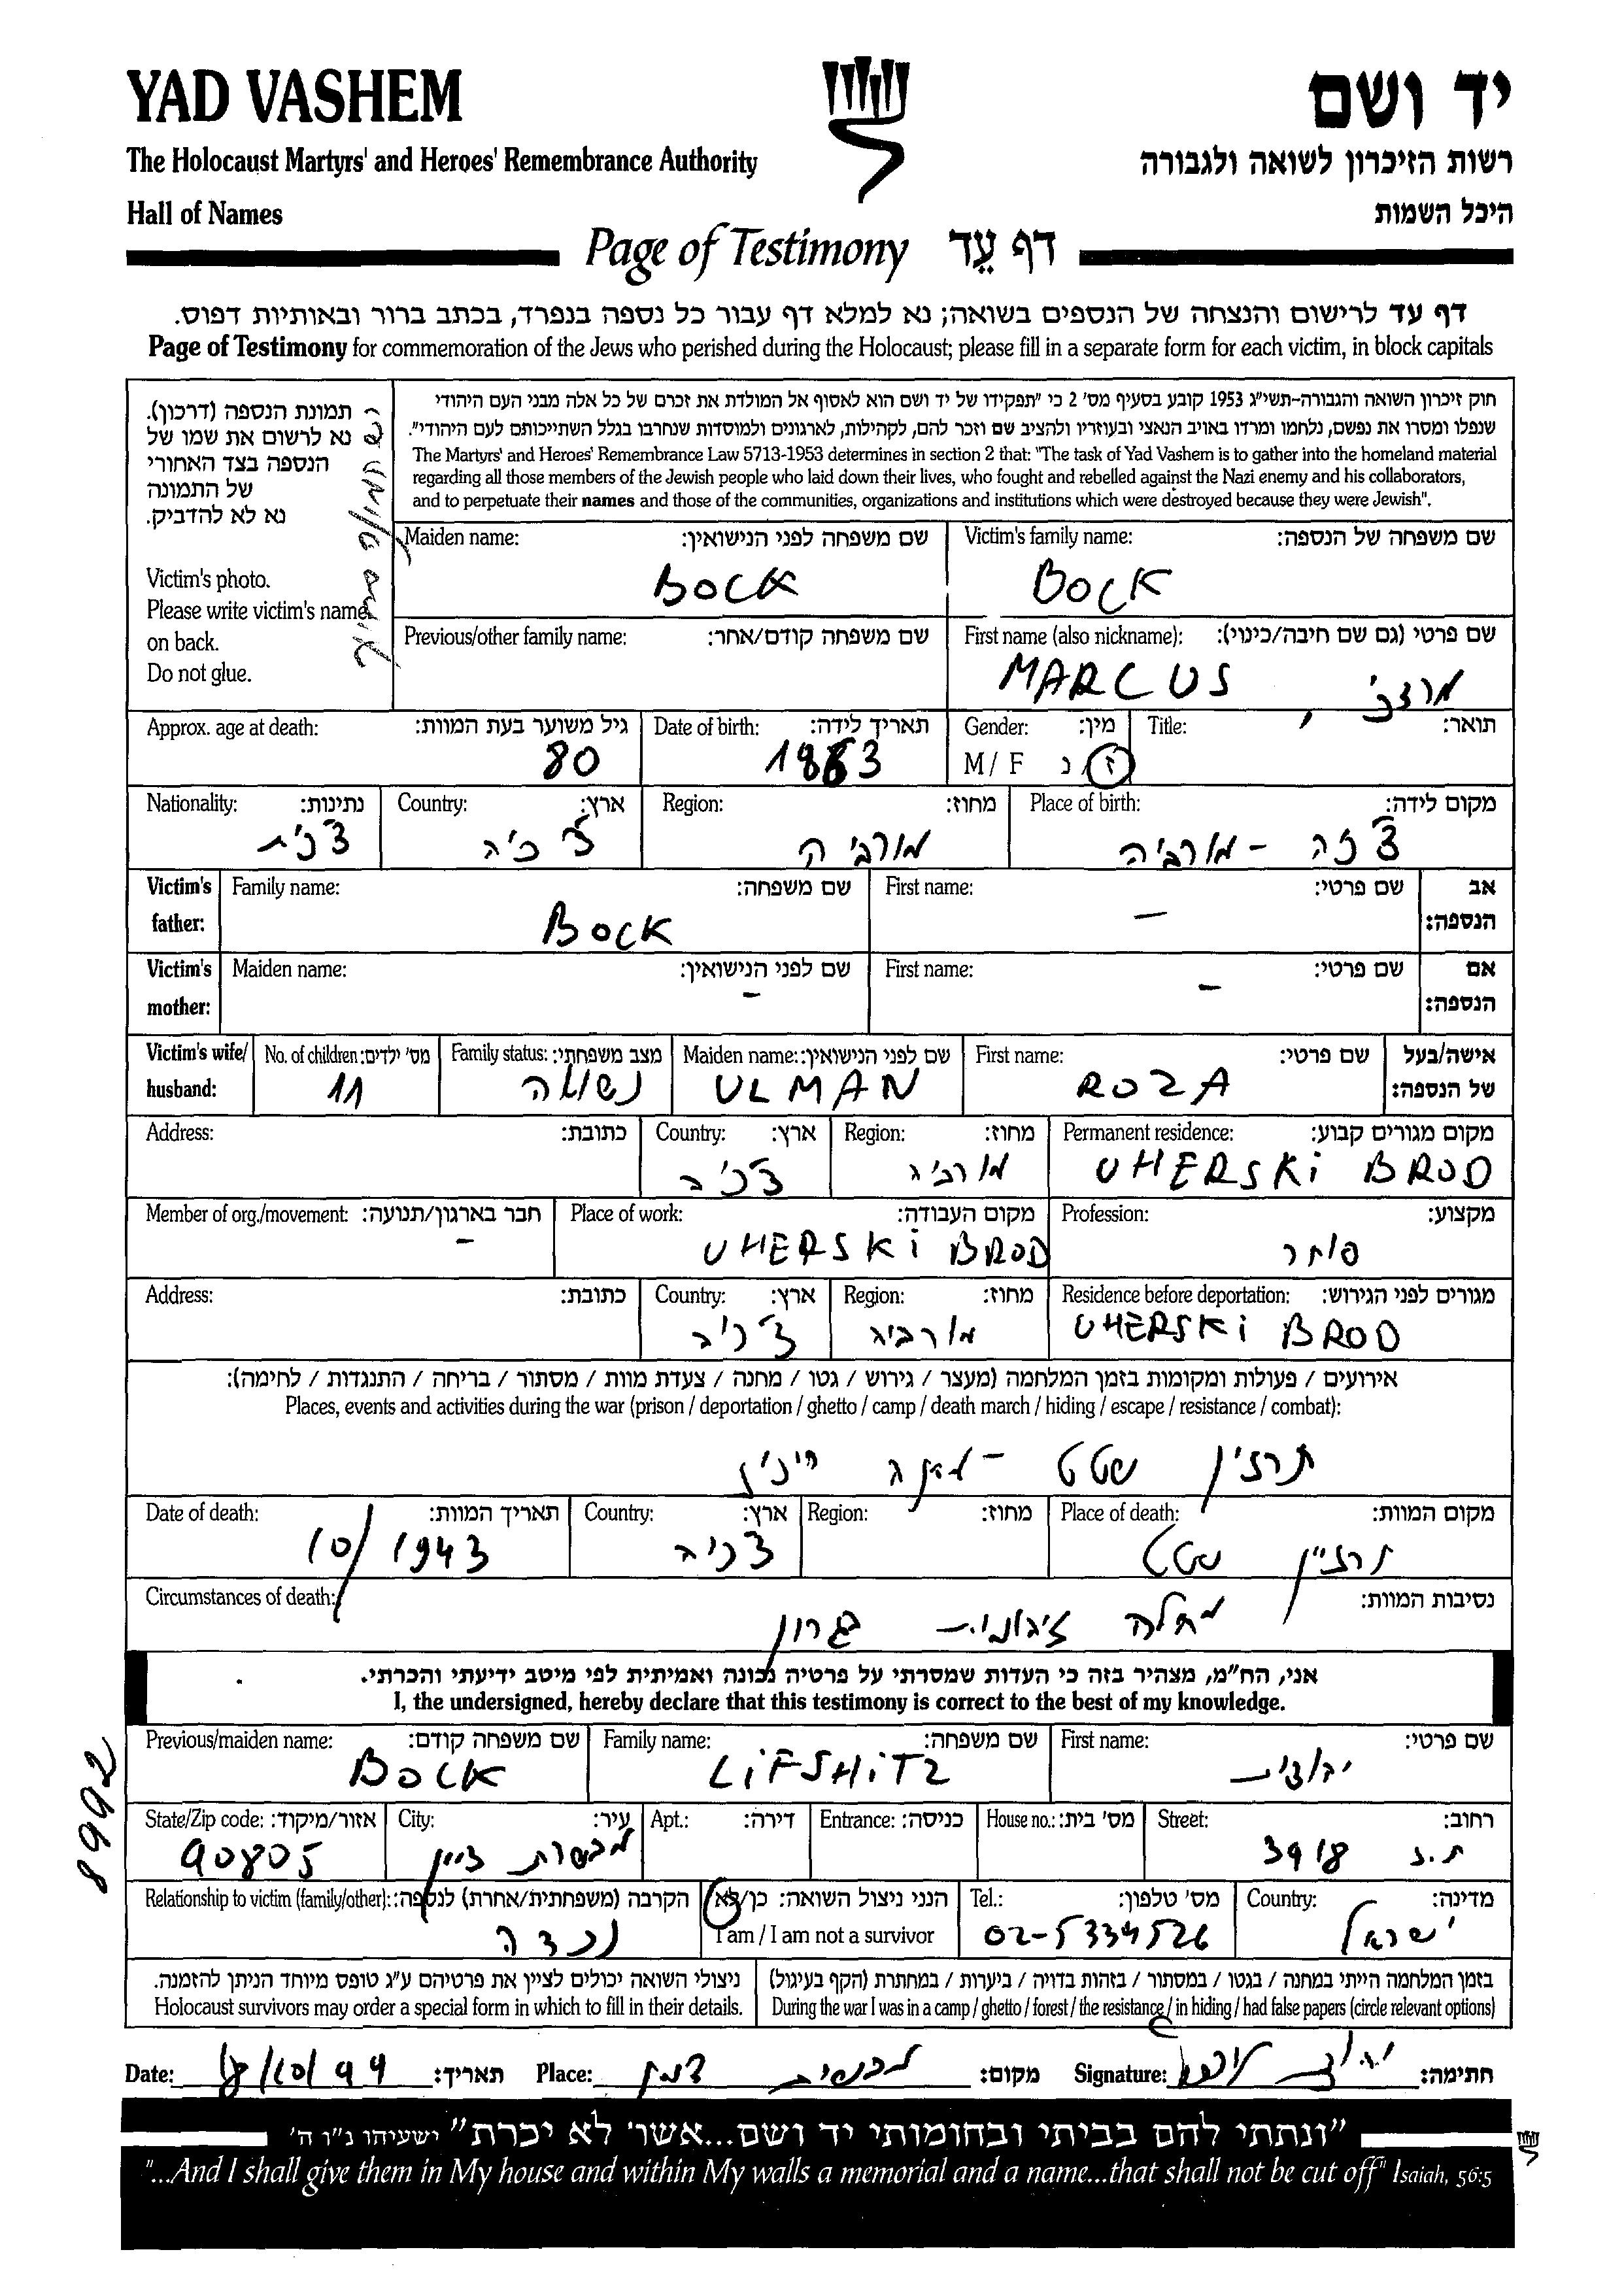 YAD VASHEM
יד ושם
The Holocaust Martyrs' and Heroes' Remembrance Authority
רשות הזיכרון לשואה ולגבורה
Hall of Names
היכל השמות
Page of Testimony דף עֵד
דף עד לרישום והנצחה של הנספים בשואה; נא למלא דף עבור כל נספה בנפרד, בכתב ברור ובאותיות דפוס.
Page of Testimony for commemoration of the Jews who perished during the Holocaust; please fill in a separate form for each victim, in block capitals
תמונת הנספה (דרכון).
נא לרשום את שמו של
הנספה בצד האחורי
של התמונה
נא לא להדביק.
Victim's photo.
Please write victim's name
on back.
Do not glue.
חוק זיכרון השואה והגבורה-תשי"ג 1953 קובע בסעיף מס' 2 כי "תפקידו של יד ושם הוא לאסוף אל המולדת את זכרם של כל אלה מבני העם היהודי
שנפלו ומסרו את נפשם, נלחמו ומרדו באויב הנאצי ובעוזריו ולהציב שם וזכר להם, לקהילות, לארגונים ולמוסדות שנחרבו בגלל השתייכותם לעם היהודי".
The Martyrs' and Heroes' Remembrance Law 5713-1953 determines in section 2 that: "The task of Yad Vashem is to gather into the homeland material
regarding all those members of the Jewish people who laid down their lives, who fought and rebelled against the Nazi enemy and his collaborators,
and to perpetuate their names and those of the communities, organizations and institutions which were destroyed because they were Jewish".
Maiden name: שם משפחה לפני הנישואין: Victim's family name: שם משפחה של הנספה:
BOCK BOCK
Previous/other family name: שם משפחה קודם/אחר: First name (also nickname): שם פרטי (גם שם חיבה/כינוי):
MARCUS
Approx. age at death: גיל משוער בעת המוות: Date of birth: תאריך לידה: Gender: מין: Title: תואר:
80 1863 M / F ז/נ
Nationality: נתינות: Country: ארץ: Region: מחוז: Place of birth: מקום לידה:
צ'כית צ'כיה מורביה צ'כיה - מורביה
Victim's father: Family name: שם משפחה: First name: שם פרטי: אב הנספה:
BOCK –
Victim's mother: Maiden name: שם לפני הנישואין: First name: שם פרטי: אם הנספה:
– –
Victim's wife/ husband: No. of children: מס' ילדים: Family status: מצב משפחתי: Maiden name: שם לפני הנישואין: First name: שם פרטי: אישה/בעל של הנספה:
11 נשואה ULMAN ROZA
Address: כתובת: Country: ארץ: Region: מחוז: Permanent residence: מקום מגורים קבוע:
צ'כיה מורביה UHERSKI BROD
Member of org./movement: חבר בארגון/תנועה: Place of work: מקום העבודה: Profession: מקצוע:
– UHERSKI BROD סוחר
Address: כתובת: Country: ארץ: Region: מחוז: Residence before deportation: מגורים לפני הגירוש:
צ'כיה מורביה UHERSKI BROD
אירועים / פעולות ומקומות בזמן המלחמה (מעצר / גירוש / גטו / מחנה / צעדת מוות / מסתור / בריחה / התנגדות / לחימה):
Places, events and activities during the war (prison / deportation / ghetto / camp / death march / hiding / escape / resistance / combat):
תרזין שטט –
Date of death: תאריך המוות: Country: ארץ: Region: מחוז: Place of death: מקום המוות:
10/1943 צ'כיה תרזין שטט
Circumstances of death: נסיבות המוות:
מחלה גרון
אני, הח"מ, מצהיר בזה כי העדות שמסרתי על פרטיה נכונה ואמיתית לפי מיטב ידיעתי והכרתי.
I, the undersigned, hereby declare that this testimony is correct to the best of my knowledge.
Previous/maiden name: שם משפחה קודם: Family name: שם משפחה: First name: שם פרטי:
BOCK LIFSHITZ יהודית
8992
State/Zip code: אזור/מיקוד: City: עיר: Apt.: דירה: Entrance: כניסה: House no.: מס' בית: Street: רחוב:
90805 מבשרת ציון ת.ד 3918
Relationship to victim (family/other): הקרבה (משפחתית/אחרת) לנספה: הנני ניצול השואה: כן/לא Tel.: מס' טלפון: Country: מדינה:
נכדה I am / I am not a survivor 02-5334526 ישראל
ניצולי השואה יכולים לציין את פרטיהם ע"ג טופס מיוחד הניתן להזמנה. בזמן המלחמה הייתי במחנה / בגטו / במסתור / בזהות בדויה / ביערות / במחתרת (הקף בעיגול)
Holocaust survivors may order a special form in which to fill in their details. During the war I was in a camp / ghetto / forest / the resistance / in hiding / had false papers (circle relevant options)
Date: 18/10/99 תאריך: Place: מבשרת ציון מקום: Signature: חתימה:
"ונתתי להם בביתי ובחומותי יד ושם...אשר לא יכרת" ישעיהו נ"ו ה'
"...And I shall give them in My house and within My walls a memorial and a name...that shall not be cut off" Isaiah, 56:5